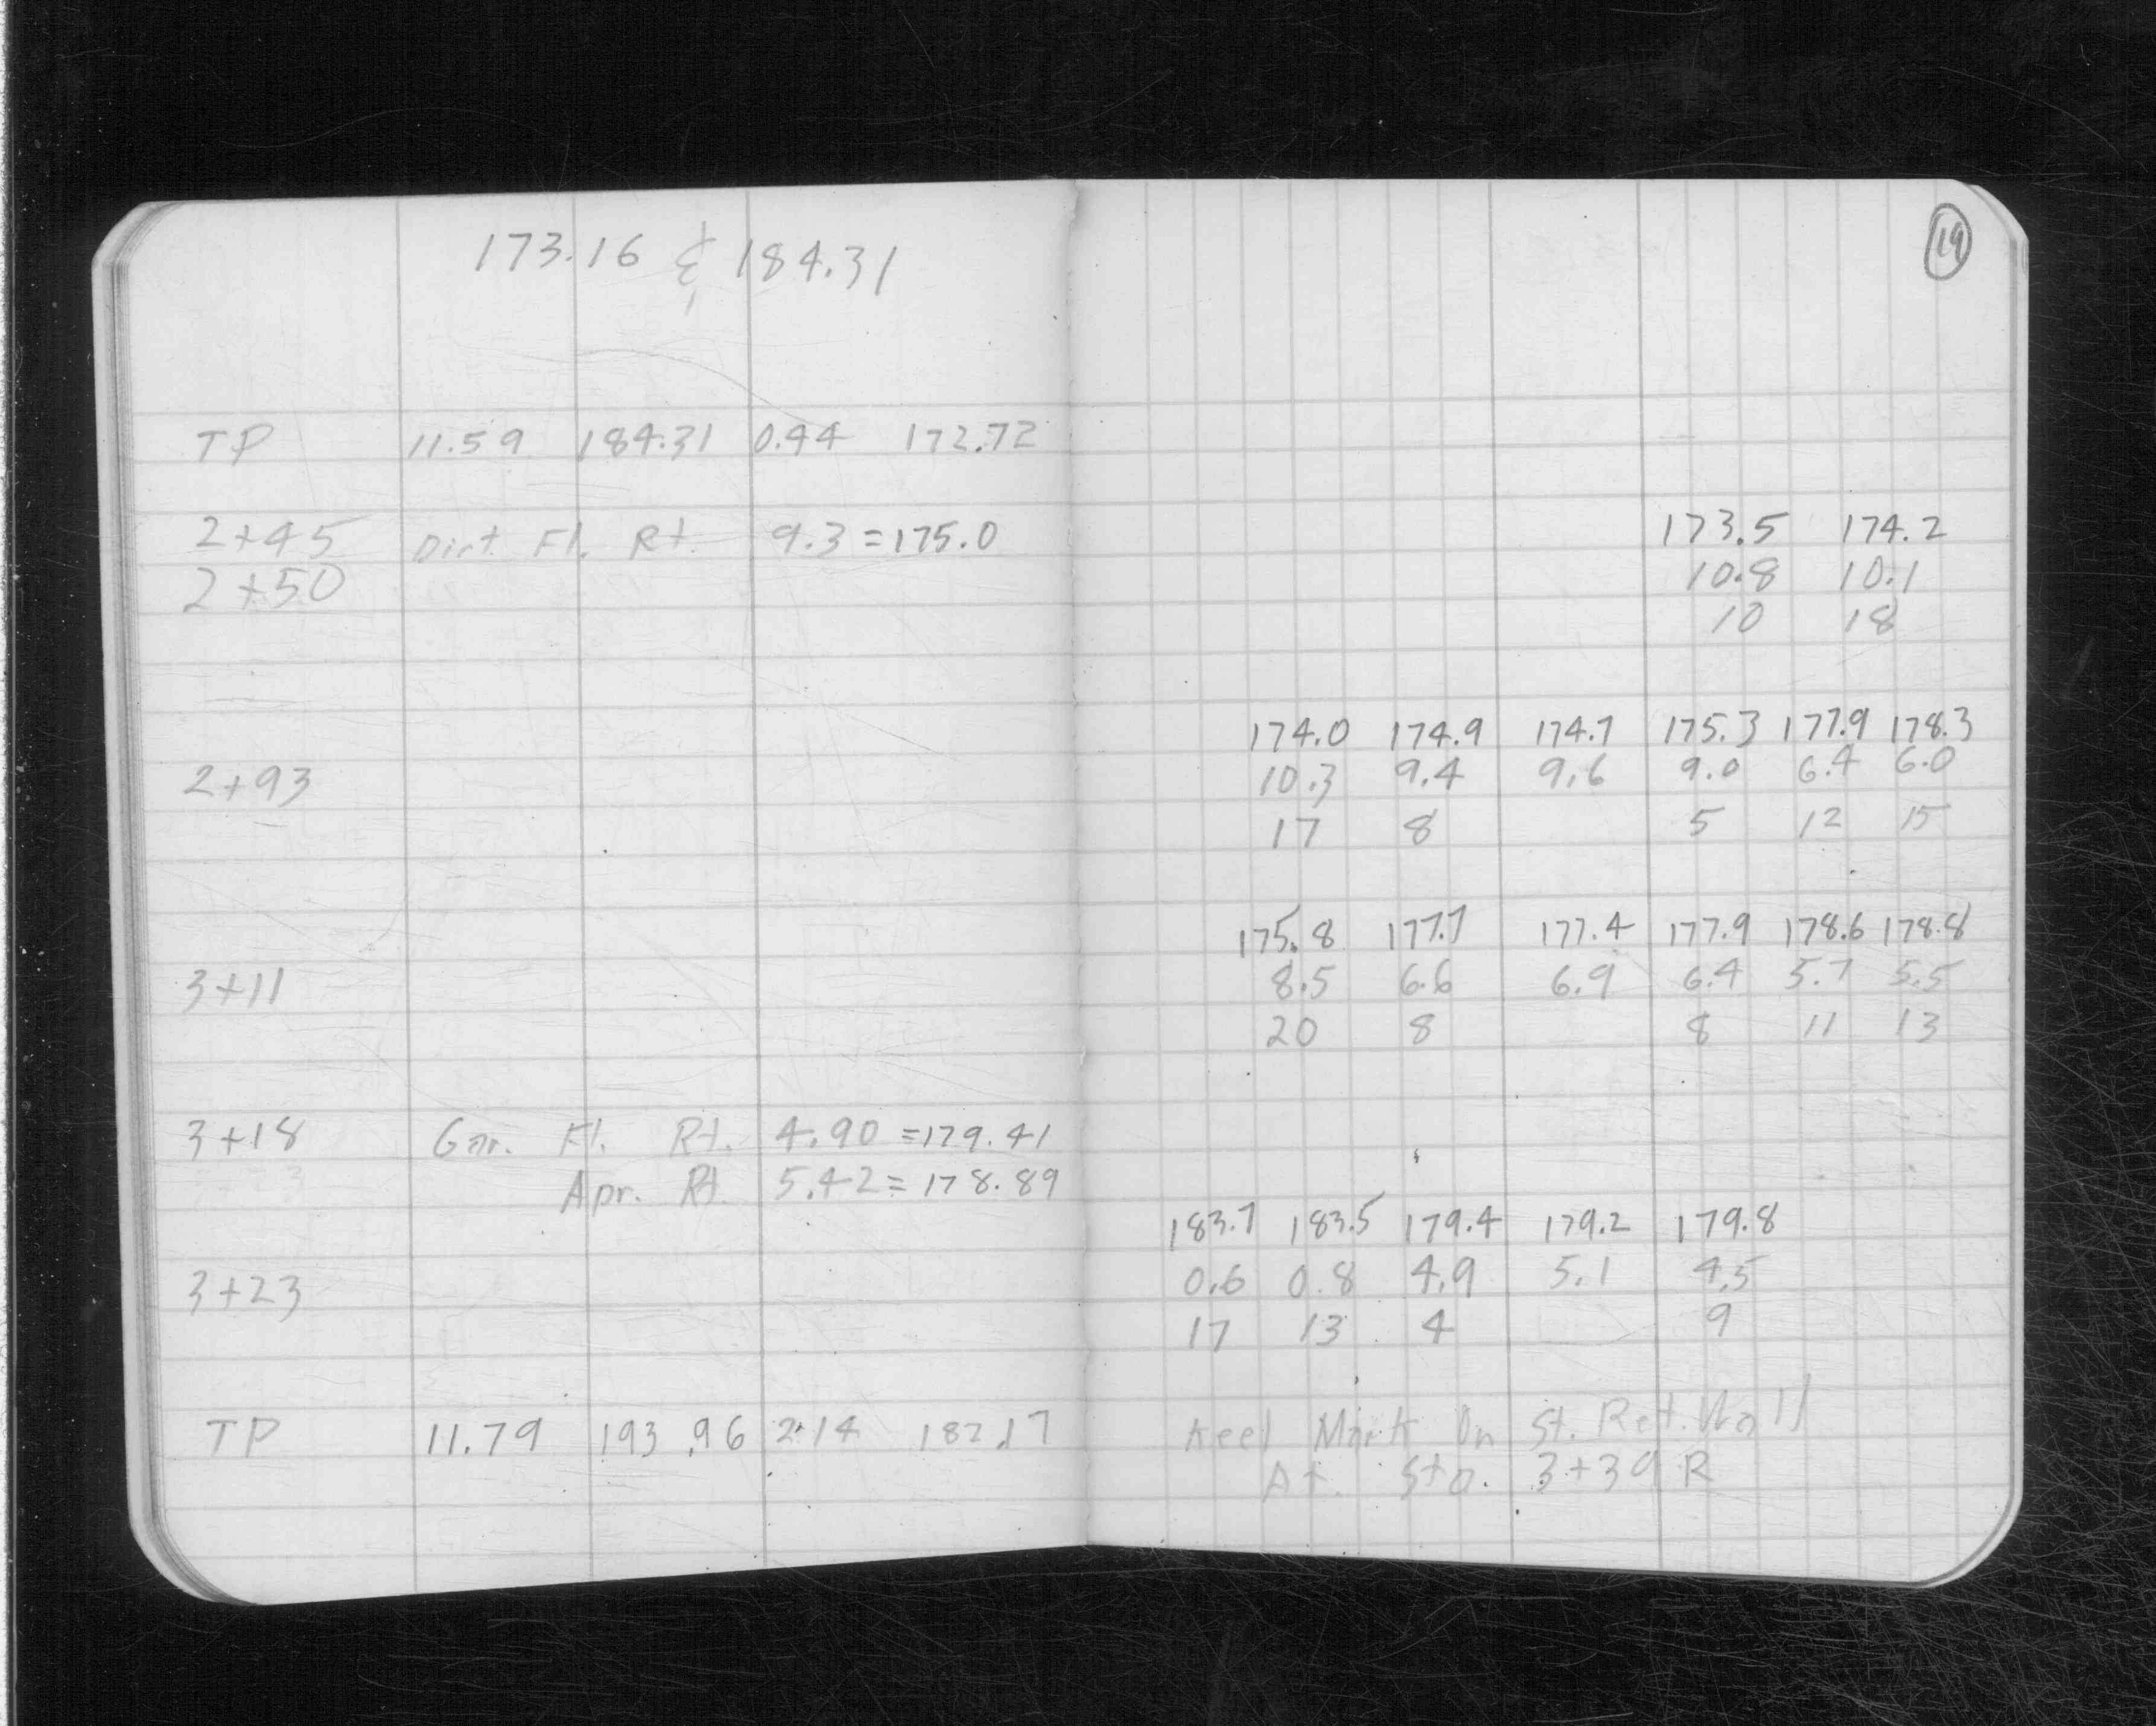 19
173.16 & 184.31
TP 11.59 184.31 0.44 172.72
2+45 Dirt Fl. Rt. 9.3 = 175.0 173.5 174.2
2+50 10.8 10.1
10 18
174.0 174.9 174.7 175.3 177.9 178.3
2+93 10.3 9.4 9.6 9.0 6.4 6.0
17 8 5 12 15
175.8 177.7 177.4 177.9 178.6 178.8
3+11 8.5 6.6 6.9 6.4 5.7 5.5
20 8 8 11 13
3+18 Gar. Fl. Rt. 4.90 = 179.41
Apr. Rt. 5.42 = 178.89
183.7 183.5 179.4 179.2 179.8
3+23 0.6 0.8 4.9 5.1 4.5
17 13 4 9
TP 11.79 193.96 2.14 182.17 Keel Mark On St. Ret. Wall
At. Sta. 3+39 R